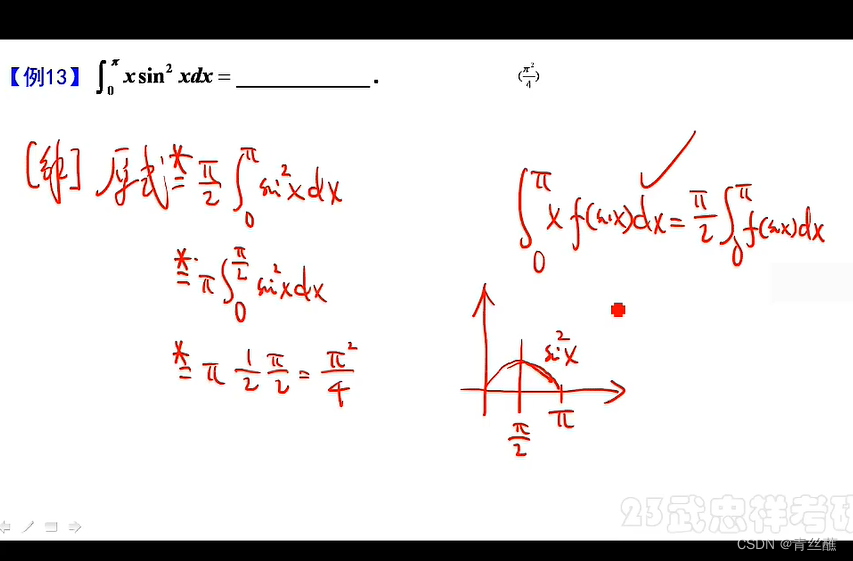 【例13】 ∫₀^π x sin² xdx = ____________ . (π²/4)
[解] 原式 ≛ π/2 ∫₀^π sin²x dx
≛ π ∫₀^(π/2) sin²x dx
≛ π 1/2 π/2 = π²/4
∫₀^π x f(sinx) dx = π/2 ∫₀^π f(sinx) dx
sin²x
π/2
π
23武忠祥考研
CSDN @青丝蘸